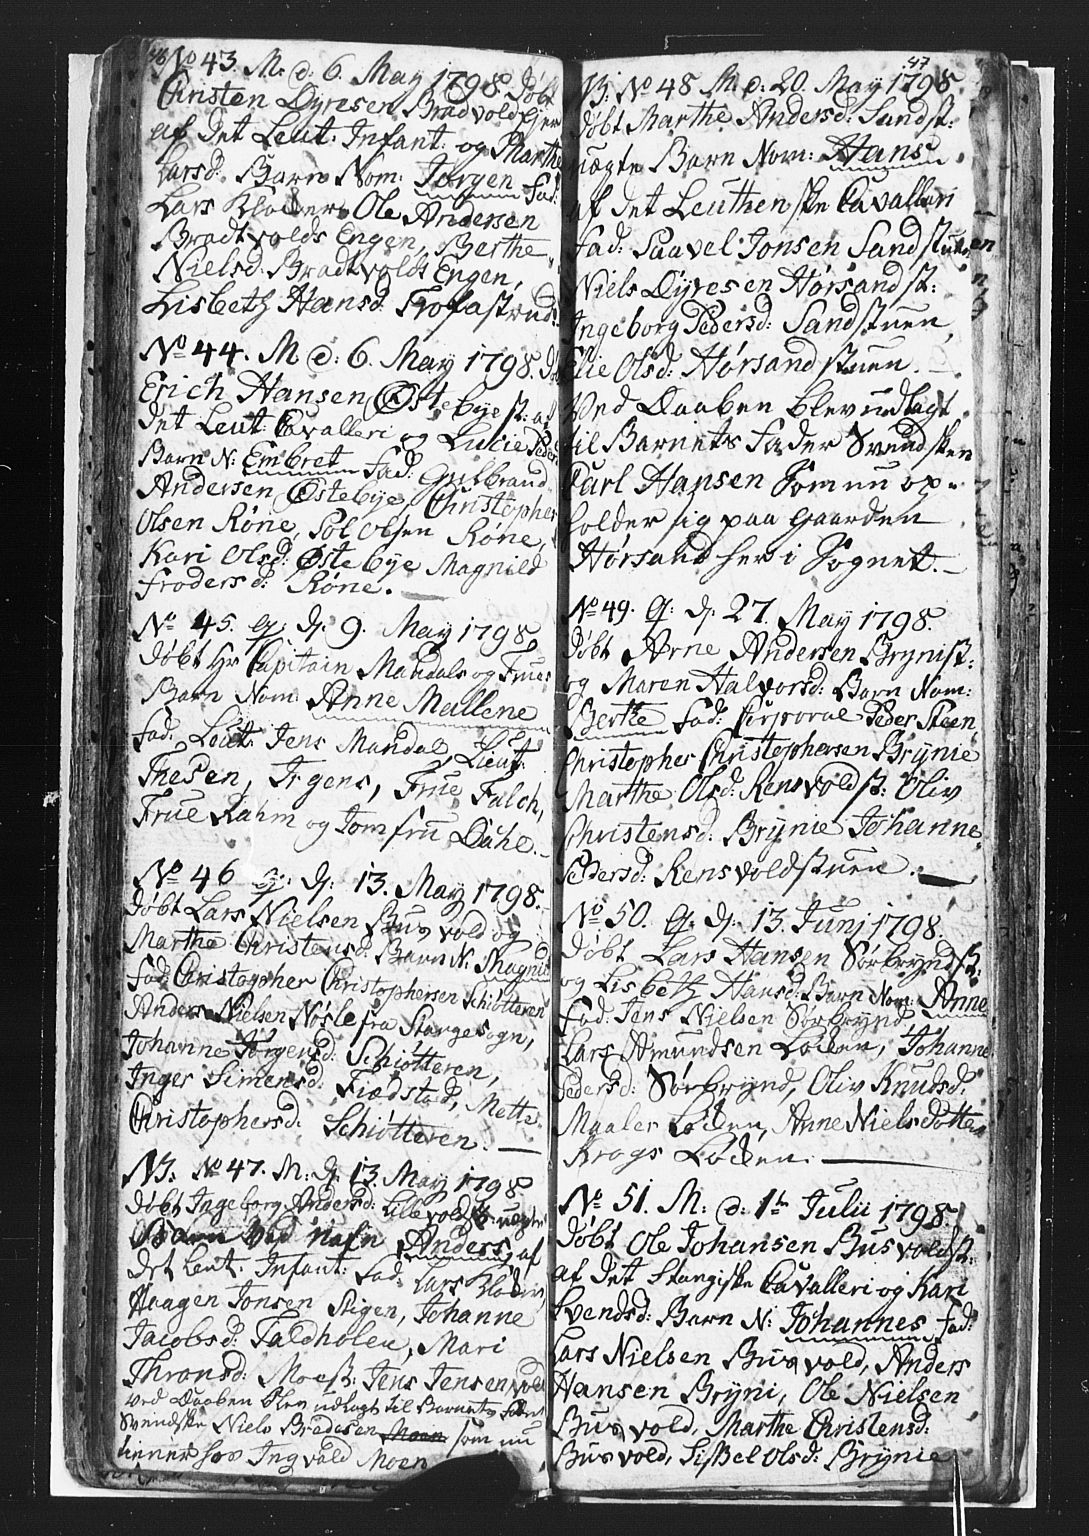 46
No 43. M. d: 6. May 1798 Døbt
Christen Dyresen Bradvold Ejer
af det Leut: Infant: og Marthe
Larsd: Barn Nom: Jørgen Fad:
Lars Ole Andersen
Bradtvolds Engen, Berthe
Nielsd: Bradtvolds Engen,
Lisbeth Hansd: Trofastrud.
No 44. M d: 6. May 1798. Døbt
Erich Hansen Østebye st: af
det Leut: Cavalleri og Lucie Peders
Barn N: Embret Fad: Gulbrand
Andersen Østebye, Christopher
Olsen Røne, Pol Olsen Røne,
Kari Olsd: Østebye Magnild
Frodersd: Røne.
No 45. G: D: 9. May 1798
døbt Hr Capitain Mandals og Frues
Barn Nom: Anne Mallene
Fad: Leut: Jens Mandal, Lieut:
Thesen, Irgens, Frue Falch,
Frue Rahm og Jomfru Dahl.
No 46 G: D: 13. May 1798.
døbt Lars Nielsen Busvold og
Marthe Christensd: Barn N: Magnil
Fad: Christopher Christophersen Schiötteren
Anders Nielsen Nøsle fra Stangesogn,
Johanne Jørgensd: Schiötteren,
Inger Simensd: Fiædstad, Mette
Christophersd: Schiötteren.
NB. No 47. M: D: 13. May 1798
døbt Ingeborg Andersd: Lillevold st: uægte
Barn ved nafn Anders, af
det Leut: Infant: Fad: Lars
Haagen Jonsen Stigen, Johanne
Jacobsd: Faldholen, Mari
Thronsd: Moesst: Jens Jensen vold
ved Daaben blev udlagt til Barnets Fader
Svendske Niels Bredesen Moen som nu
tiener hos Ingvald Moen
47
NB: No 48 M. d: 20. May 1798.
døbt Marthe Andersd: Sandst:
uægte Barn Nom: Hans
af det Leuthenske Cavalleri
Fad: Paavel Jonsen Sandstuen
Niels Dyresen Hørsandst:
Ingeborg Pedersd: Sandstuen,
Elie Olsd: Hørsandstuen.
Ved Daaben blev udlagt
til Barnets Fader Svendsken
Carl Hansen som nu op-
holder sig paa Gaarden
Hørsand her i Sognet.
No 49. G: D: 27. May 1798.
døbt Arne Andersen Brynist:
og Maren Halvorsd: Barn Nom:
Berthe Fad: Corporal Peder Steen
Christopher Christophersen Brynie
Marthe Olsd: Rensvoldst: Oliv
Christensd: Brynie Johanne
Pedersd: Rensvoldstuen.
No. 50. G: D: 13. Junj 1798.
døbt Lars Hansen Sørbryndst:
og Lisbeth Hansd: Barn Nom: Anne
Fad: Jens Nielsen Sørbrynd
Lars Amundsen Løden, Johanne
Pedersd: Sørbrynd, Oliv Knudsd:
Maaler Løden, Anne Nielsdotter
Krogs Løden.
No 51. M: d: 1te Julii 1798
døbt Ole Johansen Busvoldst:
af det Stangiske Cavalleri og Kari
Svendsd: Barn N: Johannes Fad:
Lars Nielsen Busvold, Anders
Hansen Bryni, Ole Nielsen
Busvold, Marthe Christensd:
Busvold, Sissel Olsd: Brynie